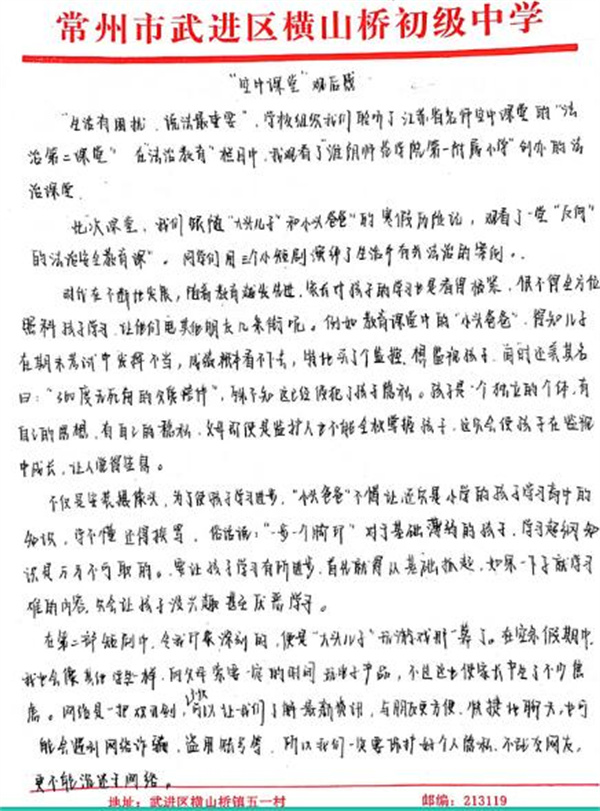 常州市武进区横山桥初级中学
"空中课堂"观后感
"生活有困扰、说法最重要",学校组织我们聆听了江苏省名师空中课堂的"法
治第二课堂" 在"法治教育"栏目中,我观看了"淮阴师范学院第一附属小学"创办的法
治课堂
此次课堂,我们跟随"大头儿子"和"小头爸爸"的寒假历险记,观看了一堂"反间"
的法治安全教育课"。同学们用三个小短剧演绎了生活中有关法治的案例。
时代在不断地发展,随着教育越发先进,家长对孩子的学习也是看得极紧,恨不得全方位
照料孩子学习,让他们甩其他朋友几条街呢。例如教育课堂中的"小头爸爸",得知儿子
在期末考试中发挥不当,成绩根本看不下去,特地买了个监控,想监视孩子,同时还美其名
曰:"360度无死角的父爱陪伴",殊不知这已经侵犯了孩子隐私。孩子是一个独立的个体,有
自己的思想,有自己的隐私,父母即便是监护人也不能全权掌握孩子,这只会使孩子在监视
中成长,让人觉得窒息。
不仅是安装摄像头,为了使孩子学习进步,"小头爸爸"不惜让还只是小学的孩子学习高中的
知识,学不懂还得挨骂。俗话说:"一步一个脚印"对于基础薄弱的孩子,学习超纲知
识是万万不可取的。要让孩子学习有所进步,首先就得从基础抓起,如果一下子就学习
难的内容,只会让孩子没兴趣甚至厌恶学习。
在第二部短剧中,令我印象深刻的,便是"大头儿子"玩游戏那一幕了。在寒假假期中,
我也会像其他学生一样,向父母索要一定的时间玩电子产品,不过这也使家长产生了不少焦
虑。网络是一把双刃剑,可以让我们了解最新资讯,与朋友更方便、快捷地聊天,也可
能会遇到网络诈骗,盗用账号等,所以我们一定要保护好个人隐私,不轻交网友,
更不能沉迷于网络。
地址:武进区横山桥镇五一村 邮编:213119